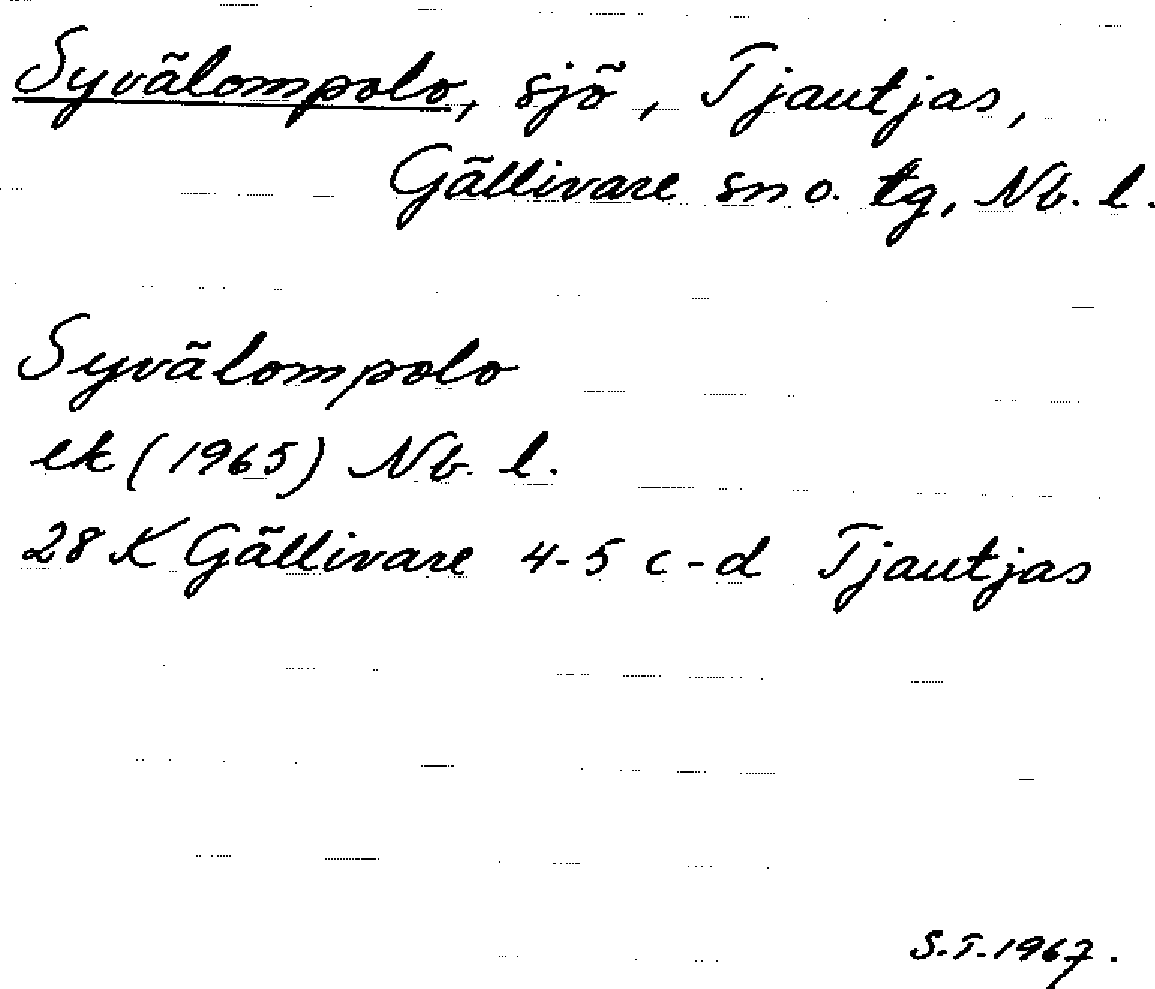 Syvälompolo, sjö, Tjautjas,
Gällivare sn o. tg, Nb. l.
Syvälompolo
ek (1965) Nb. l.
28 K Gällivare 4-5 c-d Tjautjas
S.T. 1967.